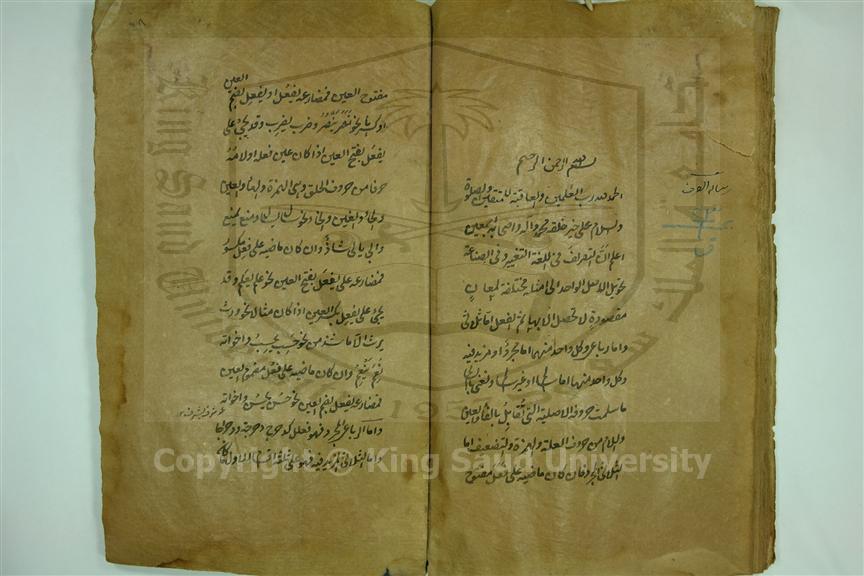 بسم الله الرحمن الرحيم
الحمد لله رب العلمين والعاقبة للمتقين والصلوة
والسلام على خير خلقه محمد وآله واصحابه اجمعين
اعلم ان التصريف في اللغة التغيير وفي الصناعة
تحويل الاصل الواحد الى امثلة مختلفة لمعان
مقصودة لا تحصل الا بها ثم الفعل اما ثلاثي
واما رباعي وكل واحد منهما اما مجرد او مزيد فيه
وكل واحد منهما اما سالم او غير سالم ونعني بالسالم
ما سلمت حروفه الاصلية التي تقابل بالفاء والعين
واللام من حروف العلة والهمزة والتضعيف اما
الثلاثي المجرد فان كان ماضيه على فعل مفتوح
رسالة
العين
مفتوح العين فمضارعه يفعل او يفعل بضم
او كسرها نحو نصر ينصر وضرب يضرب وقد يجئ على
يفعل بفتح العين اذا كان عين فعله او لامه
حرفا من حروف الحلق وهى الهمزة والهاء والعين
والحاء والغين والخاء نحو سأل يسأل ومنع يمنع
وابى يابى شاذ وان كان ماضيه على فعل مكسور
فمضارعه على يفعل بفتح العين نحو علم يعلم وقد
يجئ على يفعل بكسر العين اذا كان مثالا نحو ورث
يرث الا ما شذ من نحو حسب يحسب واخواته
نعم ينعم وان كان ماضيه على فعل مضموم العين
فمضارعه يفعل بضم العين نحو حسن يحسن واخواته
واما الرباعي المجرد فهو فعلل كدحرج دحرجة ودحراجا
واما الثلاثي المزيد فيه فهو على ثلثة اقسام الاول
King Saud University
1957
Copyright © King Saud University